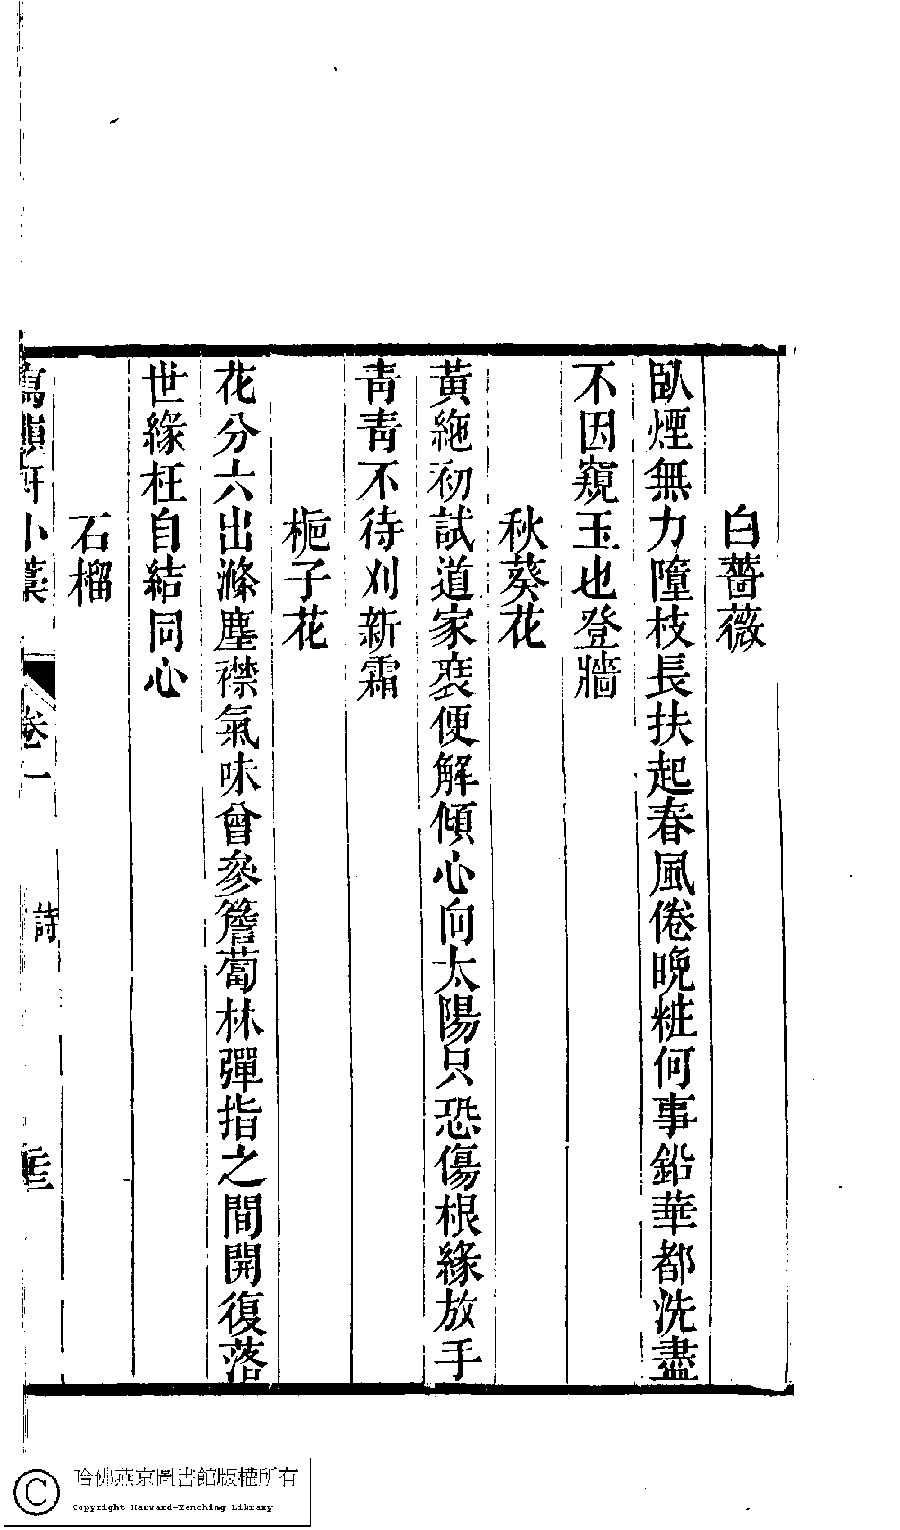 白薔薇
臥煙無力墮枝長扶起春風倦晚粧何事鉛華都洗盡
不因窺玉也登牆
秋葵花
黃絁初試道家裝便解傾心向太陽只恐傷根緣放手
靑靑不待刈新霜
梔子花
花分六出滌塵襟氣味曾參簷蔔林彈指之間開復落
世緣枉自結同心
石榴
小藁 卷一 詩
哈佛燕京圖書館版權所有
Copyright Harvard-Yenching Library